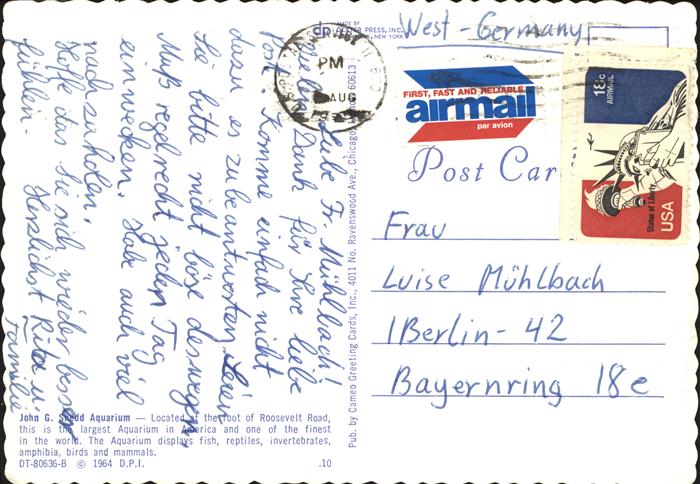 West-Germany
MADE BY
DEXTER PRESS, INC.
NEW YORK
PM
AUG
FIRST, FAST AND RELIABLE
airmail
par avion
18c
AIRMAIL
Statue of Liberty
USA
Post Car
Frau
Luise Mühlbach
1 Berlin - 42
Bayernring 18e
Liebe Fr. Mühlbach!
Vielen Dank für Ihre liebe
Post. Komme einfach nicht
dazu es zu beantworten. Seien
Sie bitte nicht böse deswegen.
Muß regelrecht jeden Tag
einwecken. Habe auch viel
nachzuholen.
Hoffe das Sie sich wieder besser
fühlen.
Herzlichst Rita u.
Familie
Pub. by Cameo Greeting Cards, Inc., 4011 No. Ravenswood Ave., Chicago, 60613
John G. Shedd Aquarium — Located at the foot of Roosevelt Road,
this is the largest Aquarium in America and one of the finest
in the world. The Aquarium displays fish, reptiles, invertebrates,
amphibia, birds and mammals.
DT-80636-B © 1964 D.P.I.
.10